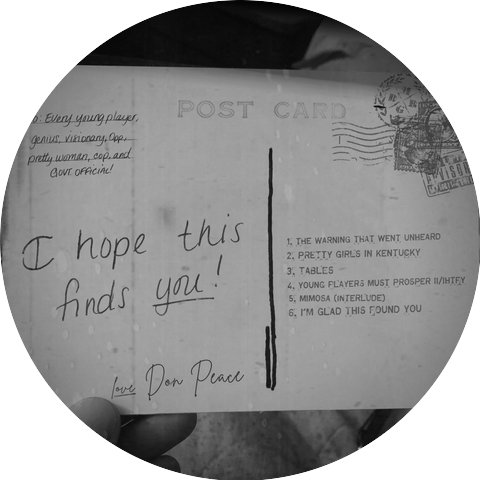 POST CARD
o: Every young player,
genius, visionary, Opp,
pretty woman, cop, and
GOVT OFFICIAL!
I hope this
finds you!
love Don Peace
1, THE WARNING THAT WENT UNHEARD
2, PRETTY GIRLS IN KENTUCKY
3, TABLES
4, YOUNG PLAYERS MUST PROSPER II/IHTFY
5, MIMOSA (INTERLUDE)
6, I'M GLAD THIS FOUND YOU